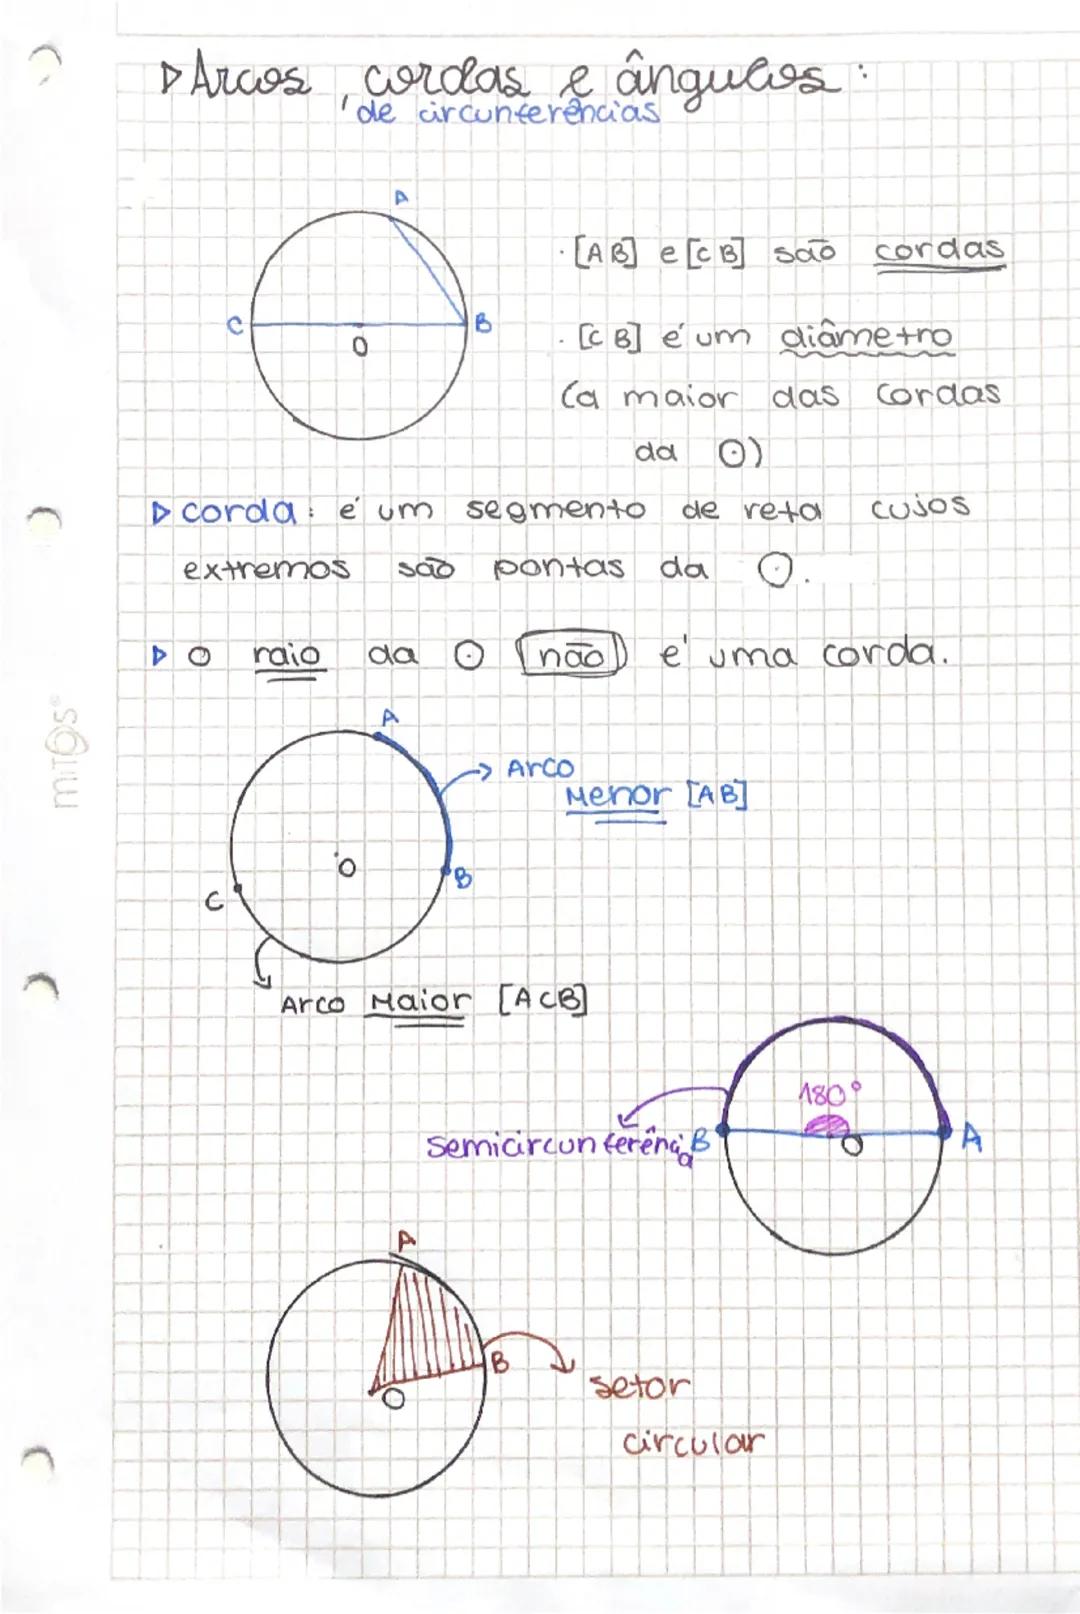 ▷ Arcos, cordas e ângulos:
de circunferências
A
C
B
O
· [AB] e [CB] são cordas
· [CB] é um diâmetro
(a maior das cordas
da ⊙)
▷ corda: é um segmento de reta cujos
extremos são pontas da ⊙.
▷ O raio da ⊙ não é uma corda.
A
→ Arco
Menor [AB]
O
B
C
Arco Maior [ACB]
180°
semicircunferência
B
O
A
A
B
O
setor
circular
MITOS